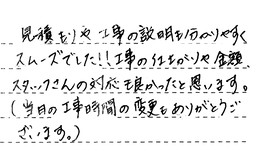 見積もりや工事の説明も分かりやすく
スムーズでした!!工事の仕上がりや金額、
スタッフさんの対応も良かったと思います。
(当日の工事時間の変更もありがとうご
ざいます。)